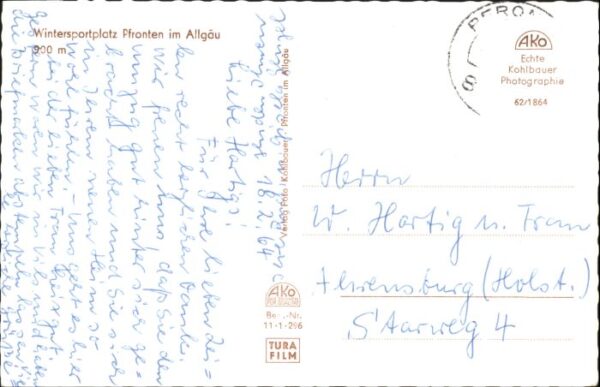 Wintersportplatz Pfronten im Allgäu
900 m
18.2.64
Liebe Hartigs!
Für Ihre lieben Zei=
len recht herzlichen Dank.
Wir freuen uns daß Sie den
Umzug gut hinter sich ge=
bracht haben und Sie sich
in Ihrem neuen Heim so
wohl fühlen. – Uns geht es hier
bei der lieben Frau
gut.
waren wir in Vils und haben
die Briefmarken abstempeln lassen
Verlag Foto Kohlbauer Pfronten im Allgäu
AKO
Best.-Nr.
11-1-296
TURA
FILM
AKO
Echte
Kohlbauer
Photographie
62/1864
Herrn
W. Hartig u. Frau
Ahrensburg (Holst.)
Saarweg 4